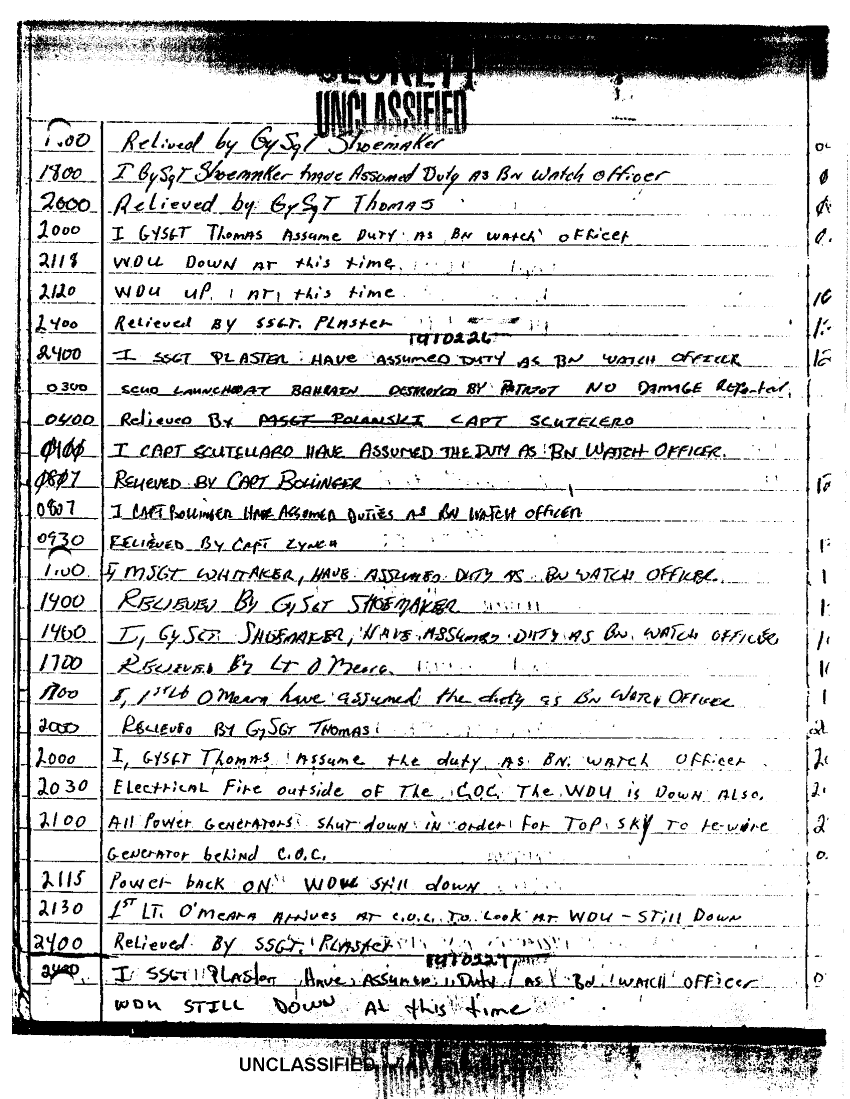 SECRET
UNCLASSIFIED
Relived by GySgt Shoemaker
1800 I GySgT Shoemaker have Assumed Duty As Bn Watch officer
2000 Relieved by GySgT Thomas
2000 I GYSGT Thomas Assume Duty As BN WATCH officer
2118 WDU DOWN AT this time
2120 WDU UP AT this time
2400 Relieved BY SSGT. PLASTER
1910226
2400 I SSGT PLASTER HAVE ASSUMED DUTY AS BN WATCH OFFICER
0300 SCUD LAUNCHED AT BAHRAIN DESTROYED BY PATRIOT NO DAMAGE REPORTED.
0400 Relieved By MSGT POLANSKI CAPT SCUTELERO
I CAPT SCUTELLARO HAVE ASSUMED THE DUTY AS BN WATCH OFFICER.
0807 RELIEVED BY CAPT BOLLINGER
0807 I CAPT BOLLINGER HAVE ASSUMED DUTIES AS BN WATCH OFFICER
0930 RELIEVED BY CAPT LYNCH
I MSGT WHITAKER, HAVE ASSUMED DUTY AS BN WATCH OFFICER.
1400 RELIEVED By GySgt SHOEMAKER
1400 I, GySGT. SHOEMAKER, HAVE ASSUMED DUTY AS BN. WATCH OFFICER
1700 RELIEVED By Lt O'Meara.
1700 I, 1st Lt O'Meara have assumed the duty as BN WATCH OFFICER
2000 RELIEVED BY GySgt THOMAS
2000 I, GYSGT Thomas Assume the duty AS BN. WATCH Officer
2030 Electrical Fire outside of The C.O.C. The WDU is Down Also.
2100 All Power Generators shut down in order for TOP SKY To re-wire
Generator behind C.O.C.
2115 Power back ON WDU still down
2130 1ST LT. O'MEARA Arrives AT C.O.C. To Look AT WDU - STill Down
2400 Relieved By SSGT. PLASTER
1910227
2400 I SSGT PLASTER Have Assumed Duty AS BN WATCH OFFICER
WDU STILL DOWN At this time
UNCLASSIFIED